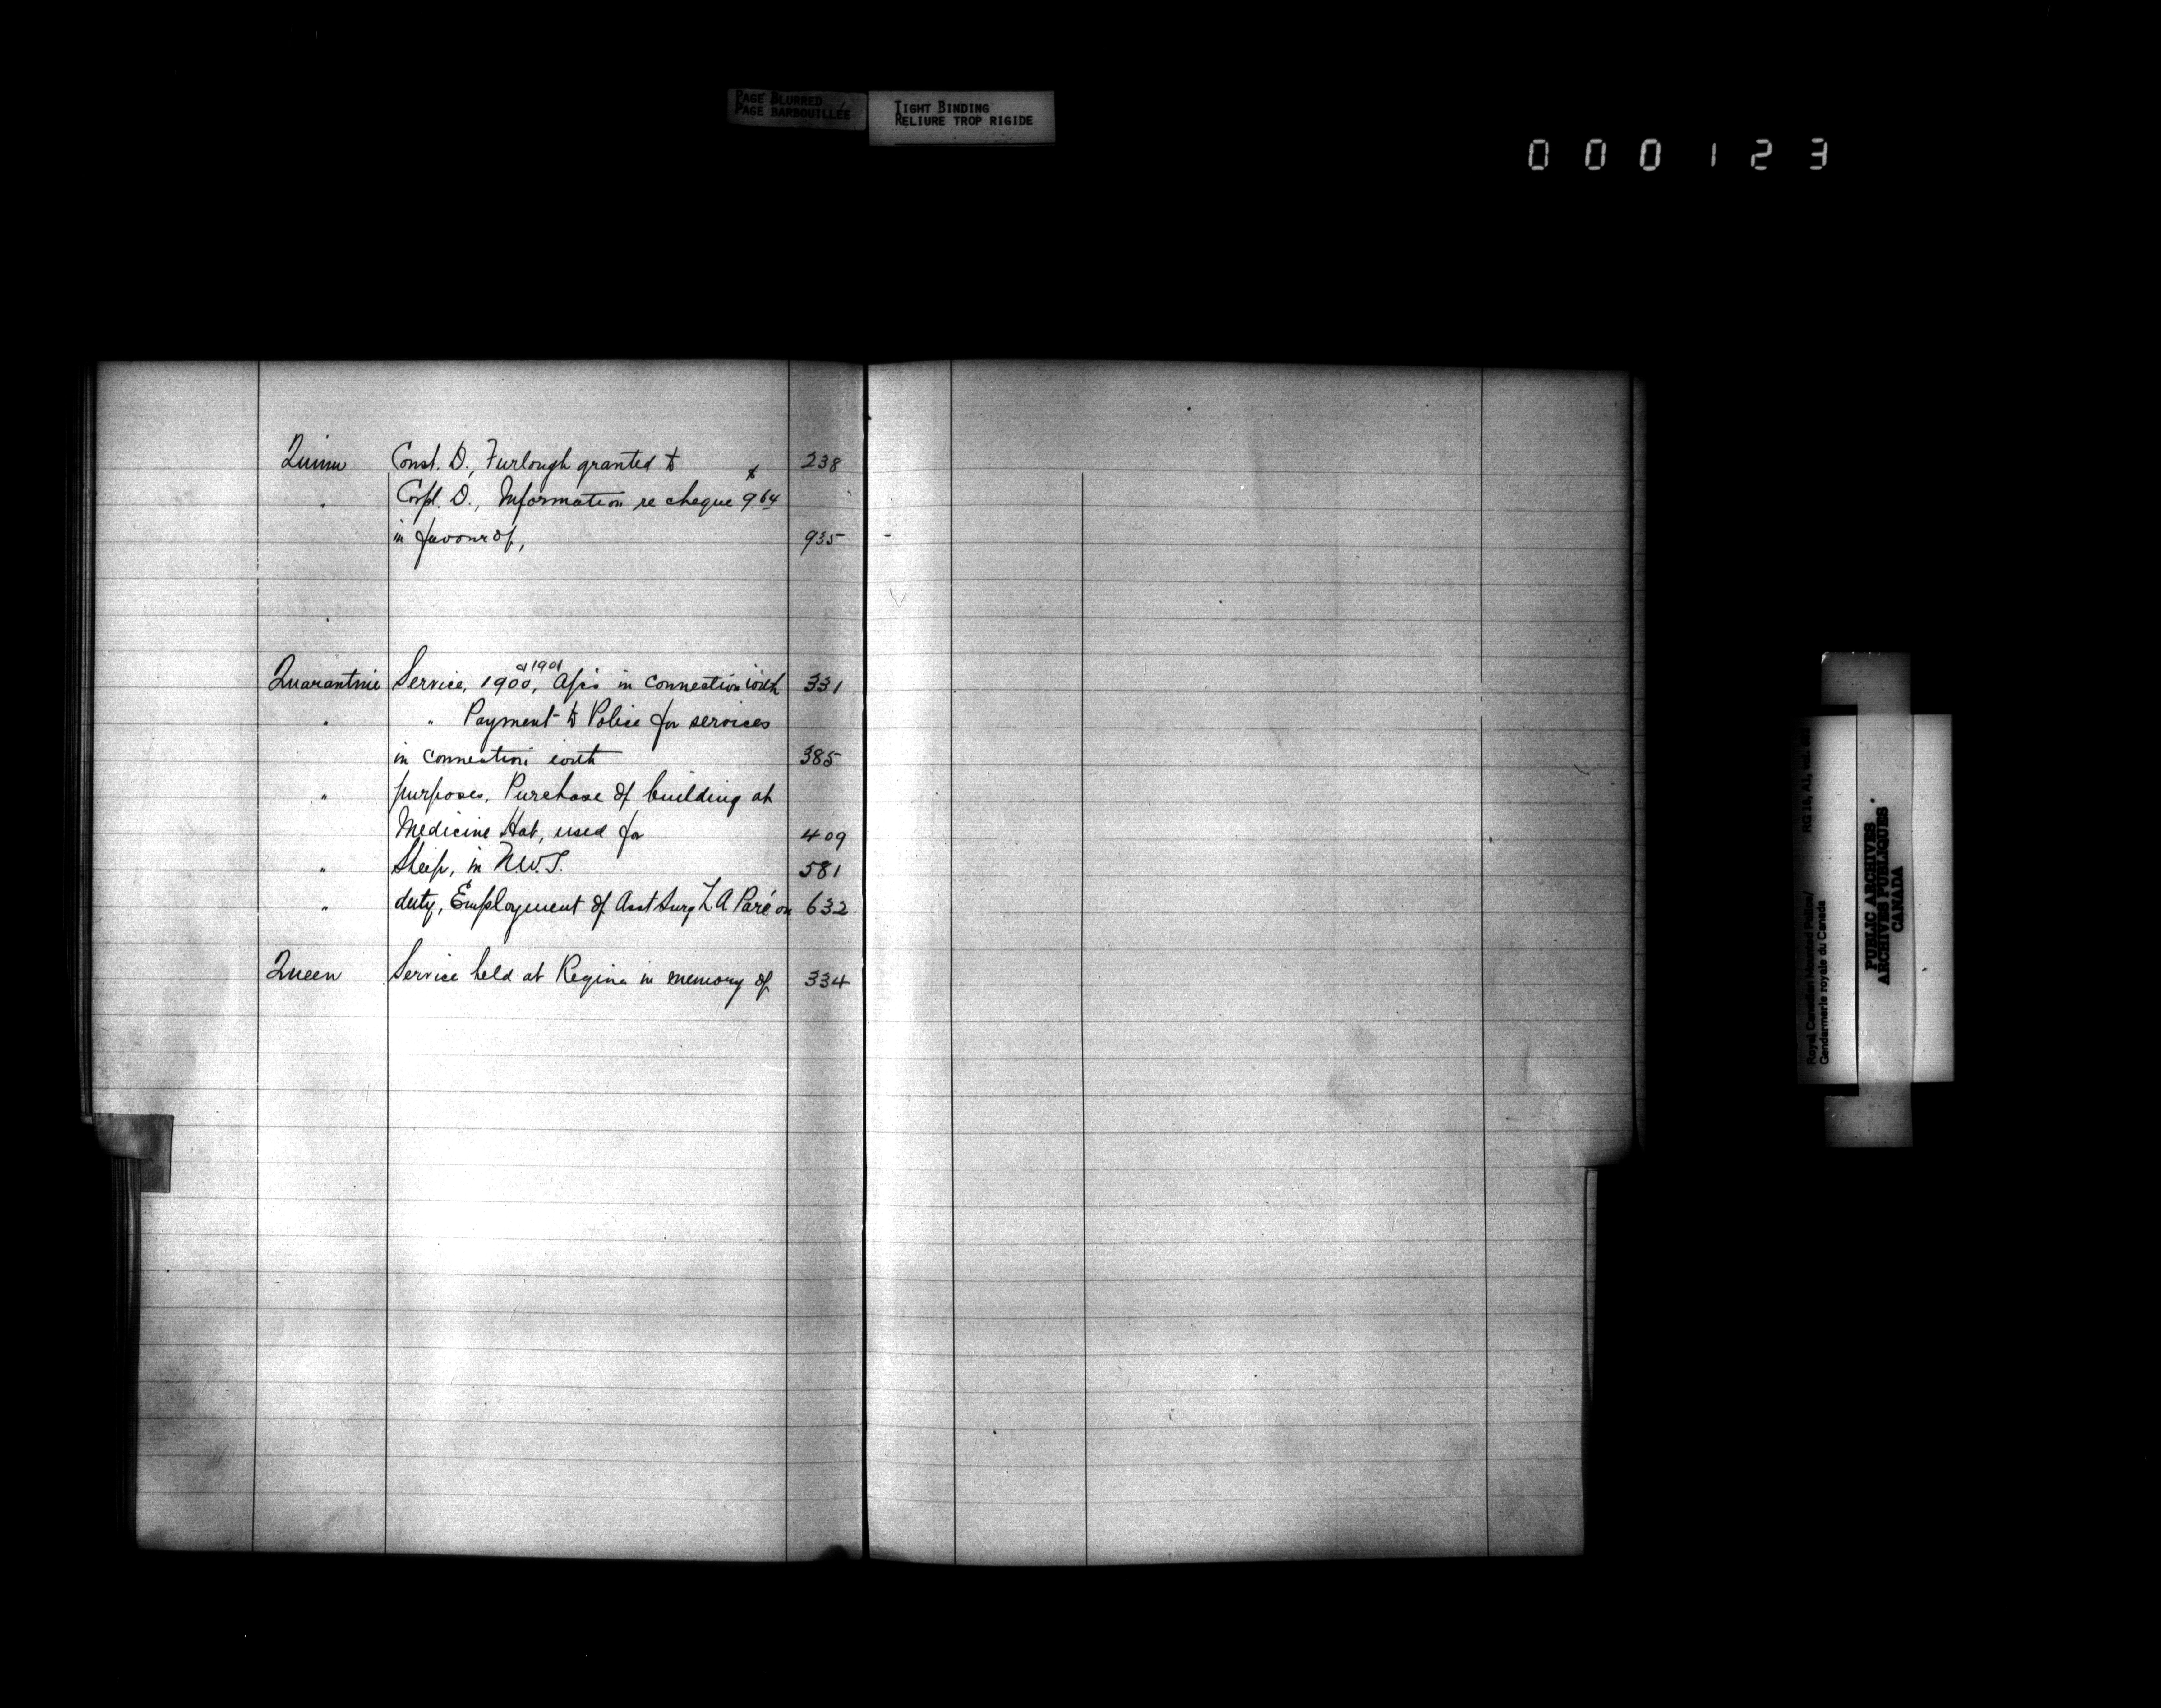 PAGE BLURRED
PAGE BARBOUILLÉE
TIGHT BINDING
RELIURE TROP RIGIDE
000123
Quinn Const. D., Furlough granted to 238
" Corpl. D., Information re cheque $9.64
in favour of, 935
Quarantine Service, 1900, & 1901 A/cs in connection with 331
" " Payment to Police for services
in connection with 385
" purposes, Purchase of building at
Medicine Hat, used for 409
" Sheep, in N.W.T. 581
" duty, Employment of Asst Surg L. A Paré on 632
Queen Service held at Regina in memory of 334
Royal Canadian Mounted Police/
Gendarmerie royale du Canada
RG 18, A1,
PUBLIC ARCHIVES
ARCHIVES PUBLIQUES
CANADA